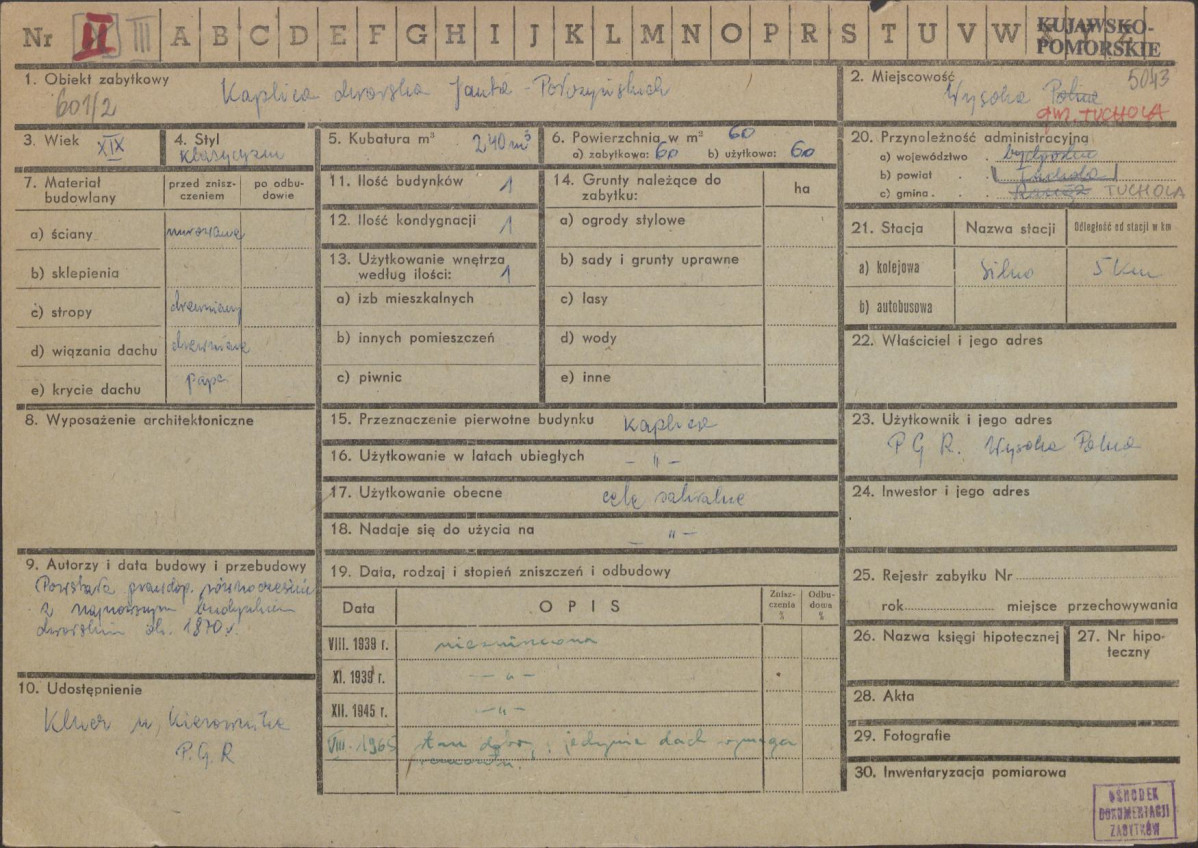 Nr II III A B C D E F G H I J K L M N O P R S T U V W KUJAWSKO-
POMORSKIE
1. Obiekt zabytkowy
601/2
Kaplica dworska Janta-Połczyńskich
2. Miejscowość
5043
Wysoka Polna
gm. TUCHOLA
3. Wiek XIX
4. Styl
klasycyzm
5. Kubatura m³ 240 m³
6. Powierzchnia w m² 60
a) zabytkowa: 60 b) użytkowa: 60
20. Przynależność administracyjna
a) województwo . bydgoskie
b) powiat . . Tuchola
c) gmina . . Raciąż TUCHOLA
7. Materiał
budowlany
przed znisz-
czeniem
po odbu-
dowie
a) ściany murowane
b) sklepienia
c) stropy drewniany
d) wiązania dachu drewniane
e) krycie dachu papa
11. Ilość budynków 1
12. Ilość kondygnacji 1
13. Użytkowanie wnętrza
według ilości: 1
a) izb mieszkalnych
b) innych pomieszczeń
c) piwnic
14. Grunty należące do
zabytku:
ha
a) ogrody stylowe
b) sady i grunty uprawne
c) lasy
d) wody
e) inne
21. Stacja
Nazwa stacji
Odległość od stacji w km
a) kolejowa Silno 5 km
b) autobusowa
22. Właściciel i jego adres
8. Wyposażenie architektoniczne
15. Przeznaczenie pierwotne budynku kaplica
16. Użytkowanie w latach ubiegłych – " –
17. Użytkowanie obecne cele sakralne
18. Nadaje się do użycia na – " –
23. Użytkownik i jego adres
P G R. Wysoka Polna
24. Inwestor i jego adres
9. Autorzy i data budowy i przebudowy
Powstała prawdop. równocześnie
z najnowszym budynkiem
dworskim ok. 1870 r.
19. Data, rodzaj i stopień zniszczeń i odbudowy
Data
OPIS
Znisz-
czenia
%
Odbu-
dowa
%
VIII. 1939 r. niezniszczona
XI. 1939 r. – " –
XII. 1945 r. – " –
VIII. 1965 stan dobry, jedynie dach wymaga
remontu.
25. Rejestr zabytku Nr
rok miejsce przechowywania
26. Nazwa księgi hipotecznej
27. Nr hipo-
teczny
10. Udostępnienie
Klucz u kierownika
P.G.R
28. Akta
29. Fotografie
30. Inwentaryzacja pomiarowa
OŚRODEK
DOKUMENTACJI
ZABYTKÓW